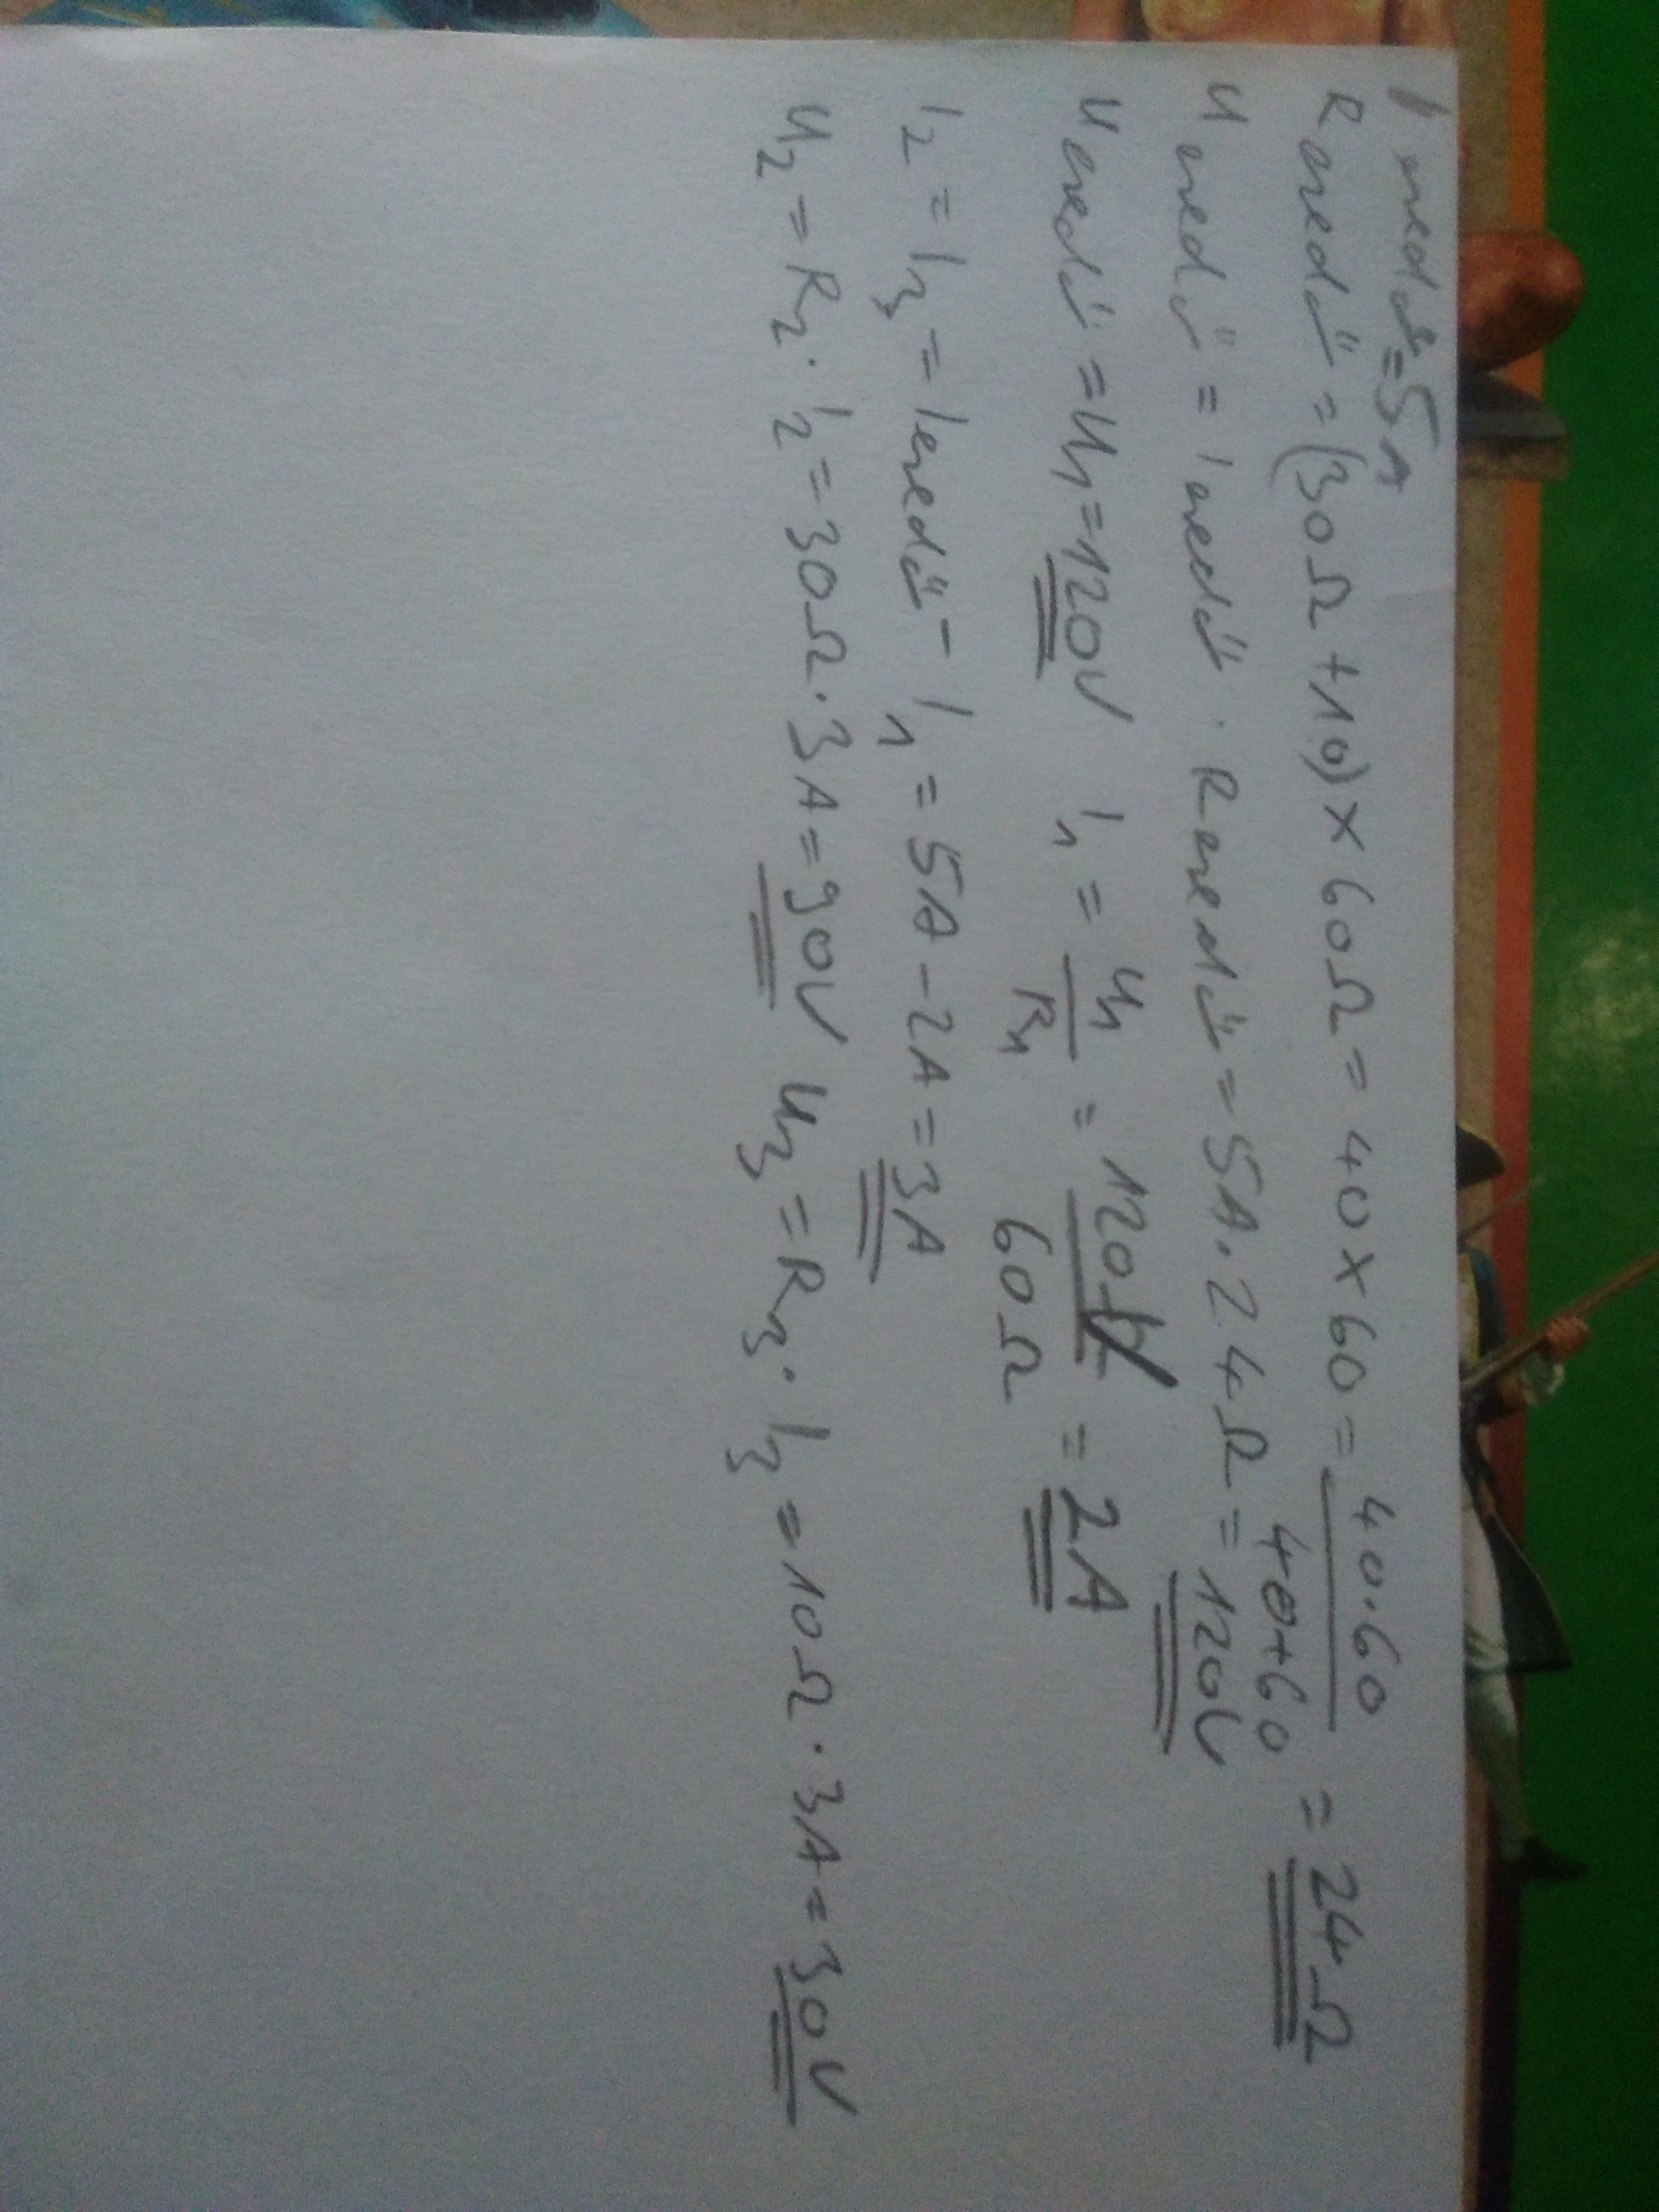 I eredő = 5A
R eredő = (30Ω + 10) × 60Ω = 40 × 60 = 40·60 / 40+60 = 24Ω
U eredő = I eredő · R eredő = 5A · 24Ω = 120V
U eredő = U1 = 120V I1 = U1 / R1 = 120V / 60Ω = 2A
I2 = I3 = I eredő - I1 = 5A - 2A = 3A
U2 = R2 · I2 = 30Ω · 3A = 90V U3 = R3 · I3 = 10Ω · 3A = 30V